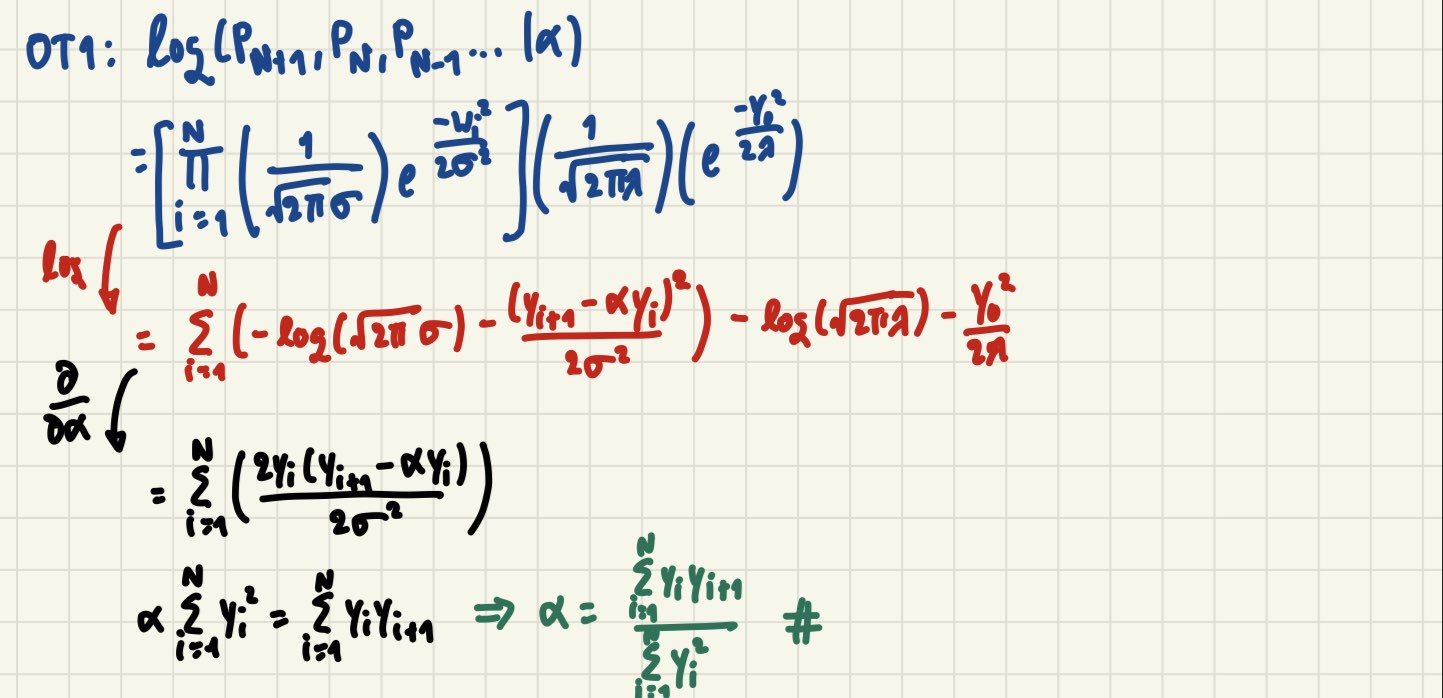 OT1: log(P_{N+1}, P_N, P_{N-1} ... |α)
= [∏_{i=1}^{N} (1/(√2π σ)) e^{-w_i²/2σ²}] (1/√(2πλ)) (e^{-y_0²/2λ})
log
= ∑_{i=1}^{N} (-log(√2π σ) - (y_{i+1} - αy_i)²/2σ²) - log(√2πλ) - y_0²/2λ
∂/∂α
= ∑_{i=1}^{N} (2y_i(y_{i+1} - αy_i)/2σ²)
α ∑_{i=1}^{N} y_i² = ∑_{i=1}^{N} y_i y_{i+1} ⇒ α = ∑_{i=1}^{N} y_i y_{i+1} / ∑_{i=1}^{N} y_i² #